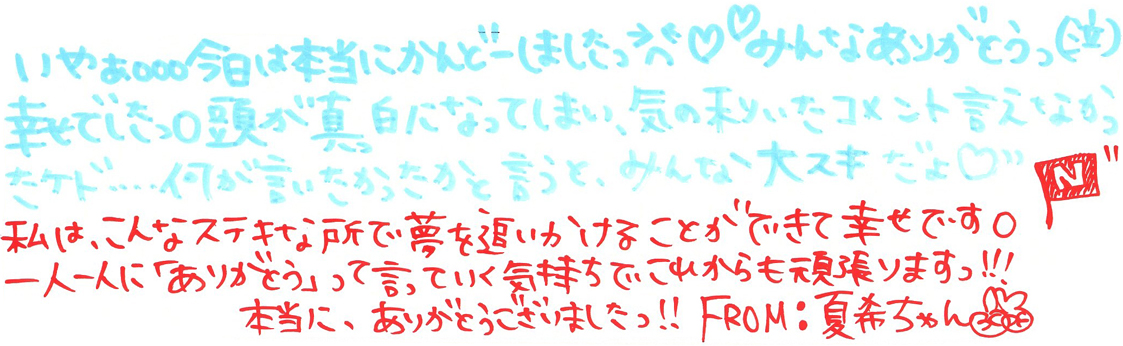 いやぁooo今日は本当にかんどーしましたっ♡♡みんなありがとうっ(泣)
幸せでしたっ○頭が真っ白になってしまい、気の利いたコメント言えなかっ
たケド‥‥何が言いたかったかと言うと、みんな大スキだよ♡"
N"
私は、こんなステキな所で夢を追いかけることができて幸せです○
一人一人に「ありがとう」って言っていく気持ちでこれからも頑張りますっ!!!
本当に、ありがとうございましたっ!! FROM:夏希ちゃん